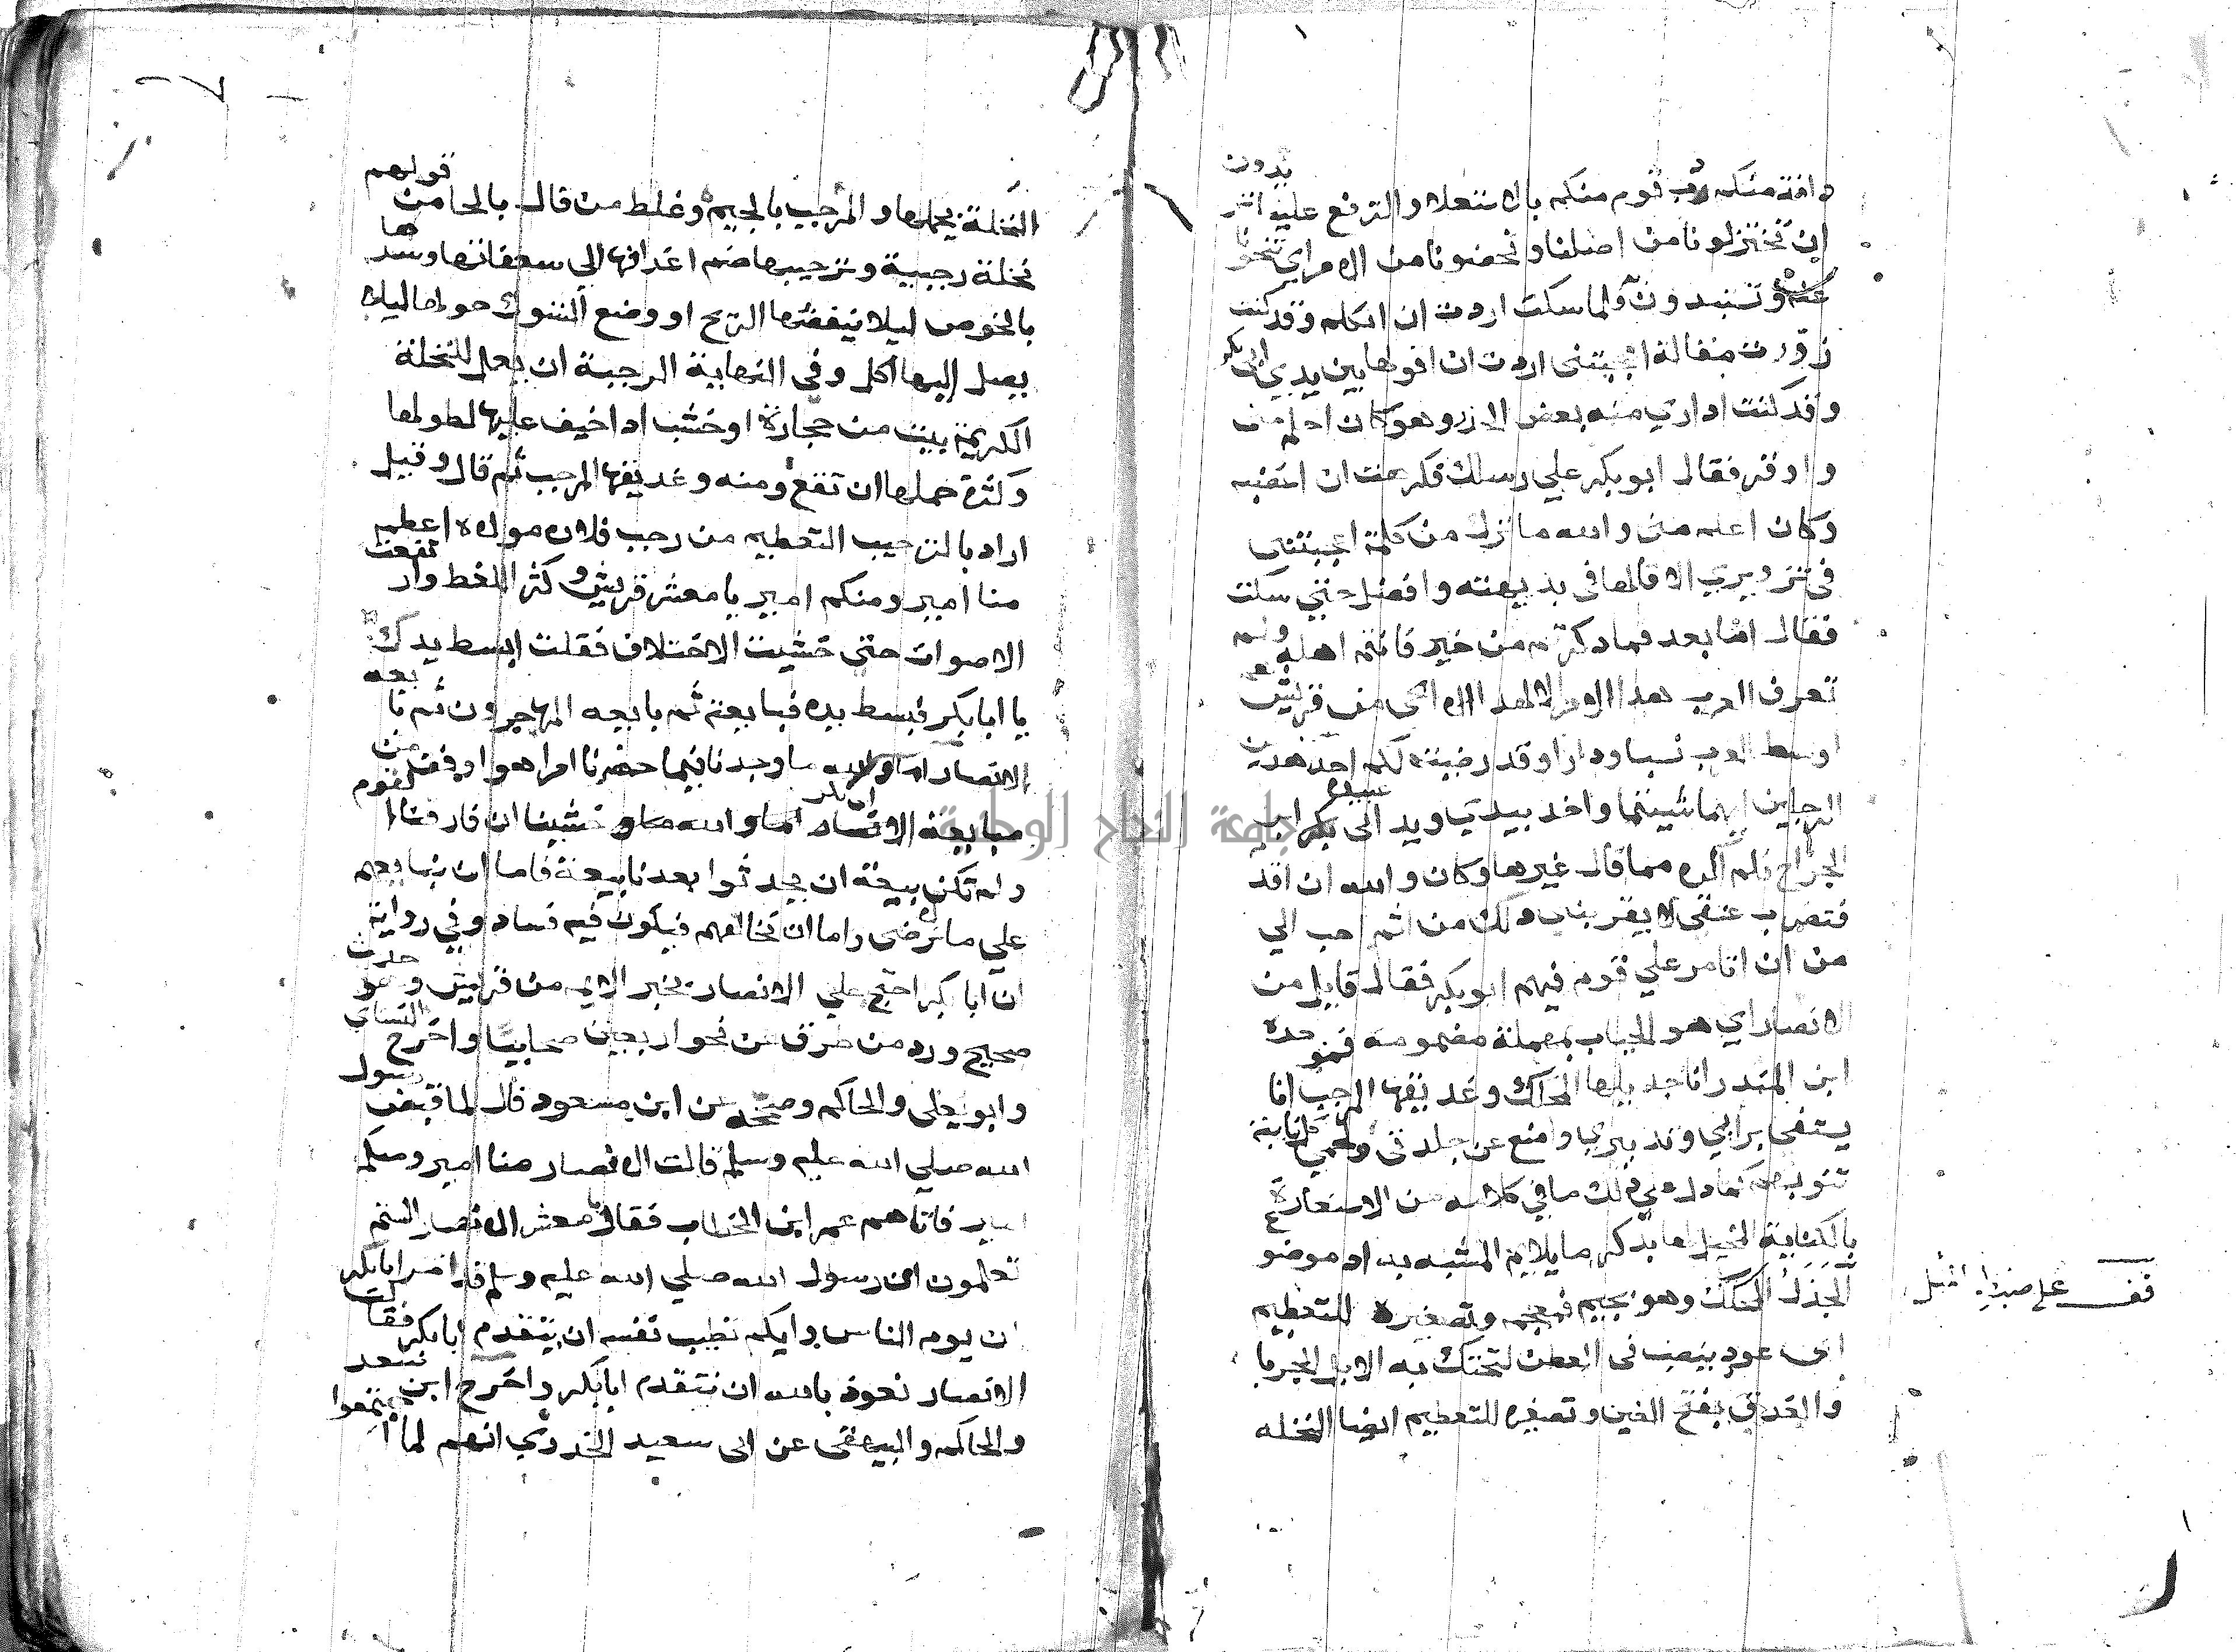 دافة منكم دب قوم منكم بالاستعلا والترفع علينا تريدون
ان تختزلونا من اصلنا وتحضنونا من الامر اي تنحونا
عنه وتستبدون فلما سكت اردت ان اتكلم وقد كنت
زورت مقالة اعجبتني اردت ان اقولها بين يدي ابي بكر
وقد كنت اداري منه بعض الحد وهو كان احلم مني
واوقر فقال ابو بكر علي رسلك فكرهت ان اغضبه
وكان اعلم مني والله ما ترك من كلمة اعجبتني
في تزويري الا قالها في بديهته وافضل حتي سكت
فقال اما بعد فما ذكرتم من خير فانتم اهله ولم
تعرف العرب هذا الامر الا لهذا الحي من قريش هم
اوسط العرب نسبا ودارا وقد رضيت لكم احد هذين
الرجلين ايهما شيتما واخذ بيدي ويد ابي عبيدة ابن
الجراح فلم اكره مما قال غيرها وكان والله ان اقدم
فتضرب عنقي لا يقربني ذلك من اثم احب الي
من ان اتامر علي قوم فيهم ابو بكر فقال قايل من
الانصار اي هو الحباب بمهملة مضمومة فموحدة
ابن المنذر انا جديلها المحكك وعذيقها المرجب انا
يستفي برايي وتدبيري وامنع عن جلدتي ولحمي كل نايبة
تنوبهم كما دل علي ذلك ما في كلامه من الاستعارة
بالكناية المخيل لها بذكر ما يلايم المشبه به اذ موضوع
الجذل المحكك وهو بجيم فمعجمه وتصغيره للتعظيم
اي عود ينصب في العطن لتحتك به الابل الجربا
والعذق بفتح العين وتصغيره للتعظيم ايضا النخله
قف علي ضبط
النخلة يحملها والمرجب بالجيم وغلط من قال بالحا من قولهم
نخلة رجبية وترجيبها ضم اعذاقها الي سعفاتها وشدها
بالخوص ليلا ينفضها الريح او وضع الشوك حولها ليلا
يصل اليها اكل وفي النهاية الرجبة ان يعمل للنخلة
الكريمة بيت من حجارة او خشب اذا خيف عليها لطولها
وكثرة حملها ان تقع ومنه وعذيقها المرجب ثم قال وقيل
اراد بالترجيب التعظيم من رجب فلان مولاه اعظمه
منا امير ومنكم امير يا معشر قريش وكثر اللغط وارتفعت
الاصوات حتي خشيت الاختلاف فقلت ابسط يدك
يا ابا بكر فبسط يده فبايعته ثم بايعه المهاجرون ثم بايعه
الانصار اما والله ما وجدنا فيما حضرنا امرا هو اوفق من
مبايعة ابي بكر اما والله خشينا ان فارقنا القوم
ولم تكن بيعة ان يحدثوا بعدنا بيعة فاما ان نبايعهم
علي ما لا نرضي واما ان نخالفهم فيكون فيه فساد وفي رواية
ان ابا بكر احتج علي الانصار بخبر الايمة من قريش وهو حديث
صحيح ورد من طرق عن نحو اربعين صحابيا واخرج النساي
وابو يعلي والحاكم وصححه عن ابن مسعود قال لما قبض رسول
الله صلي الله عليه وسلم قالت الانصار منا امير ومنكم
امير فاتاهم عمر ابن الخطاب فقال يا معشر الانصار الستم
تعلمون ان رسول الله صلي الله عليه وسلم قد امر ابا بكر
ان يوم الناس وايكم تطيب نفسه ان يتقدم ابا بكر فقالت
الانصار نعوذ بالله ان نتقدم ابا بكر واخرج ابن سعد
والحاكم والبيهقي عن ابي سعيد الخدري انهم لما اجتمعوا
جامعة النجاح الوطنية